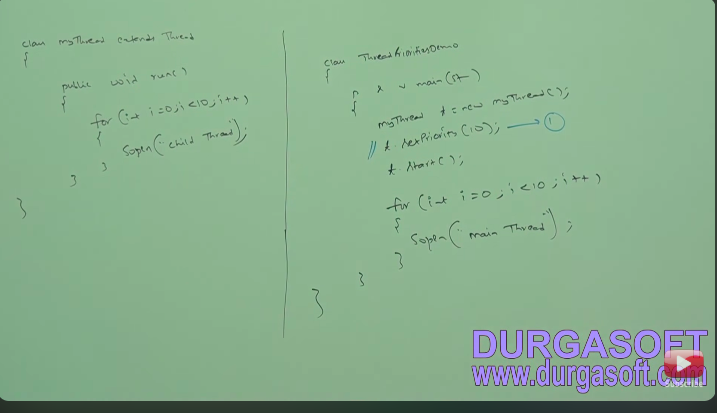 class myThread extends Thread
{
public void run()
{
for (int i=0; i<10; i++)
{
Sopln("child Thread");
}
}
}
class ThreadPrioritiesDemo
{
p s v main(St)
{
myThread t = new myThread();
// t.setPriority(10); → 1
t.start();
for (int i=0; i<10; i++)
{
Sopln("main Thread");
}
}
}
DURGASOFT
www.durgasoft.com
SUBSCRIBE